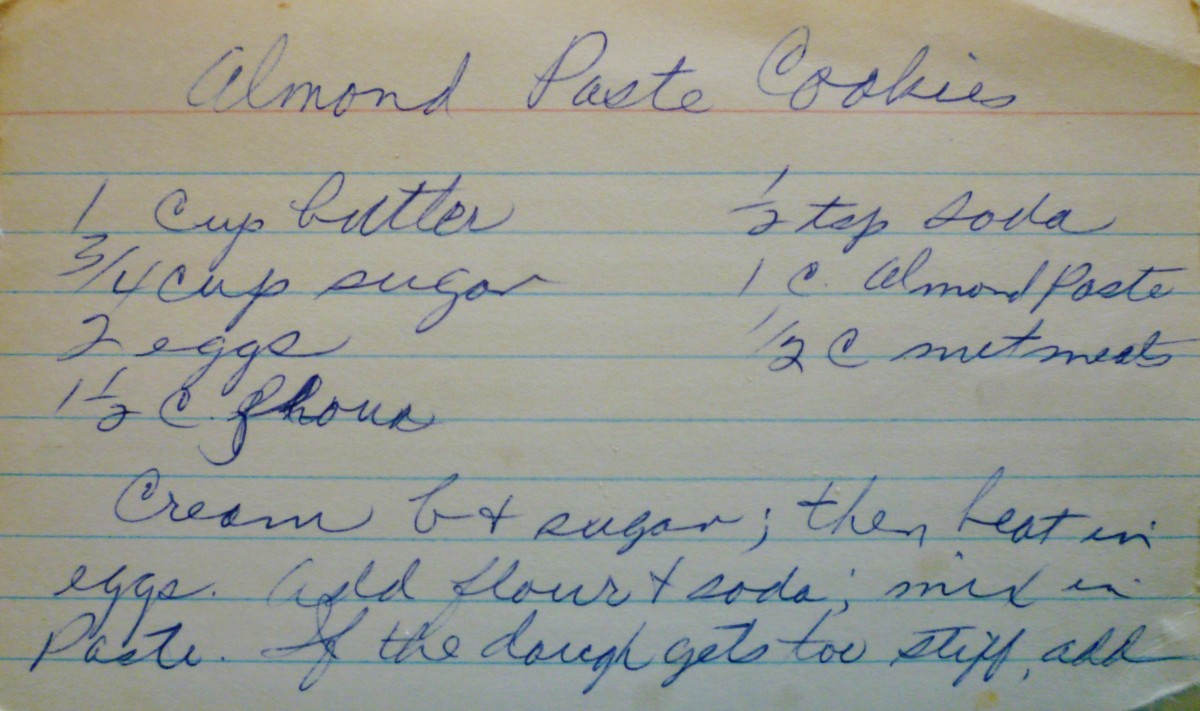 Almond Paste Cookies
1 Cup butter
3/4 cup sugar
2 eggs
1 1/2 C. flour
1/2 tsp soda
1 C. Almond Paste
1/2 C nutmeats
Cream b + sugar; then beat in
eggs. Add flour + soda; mix in
Paste. If the dough gets too stiff, add